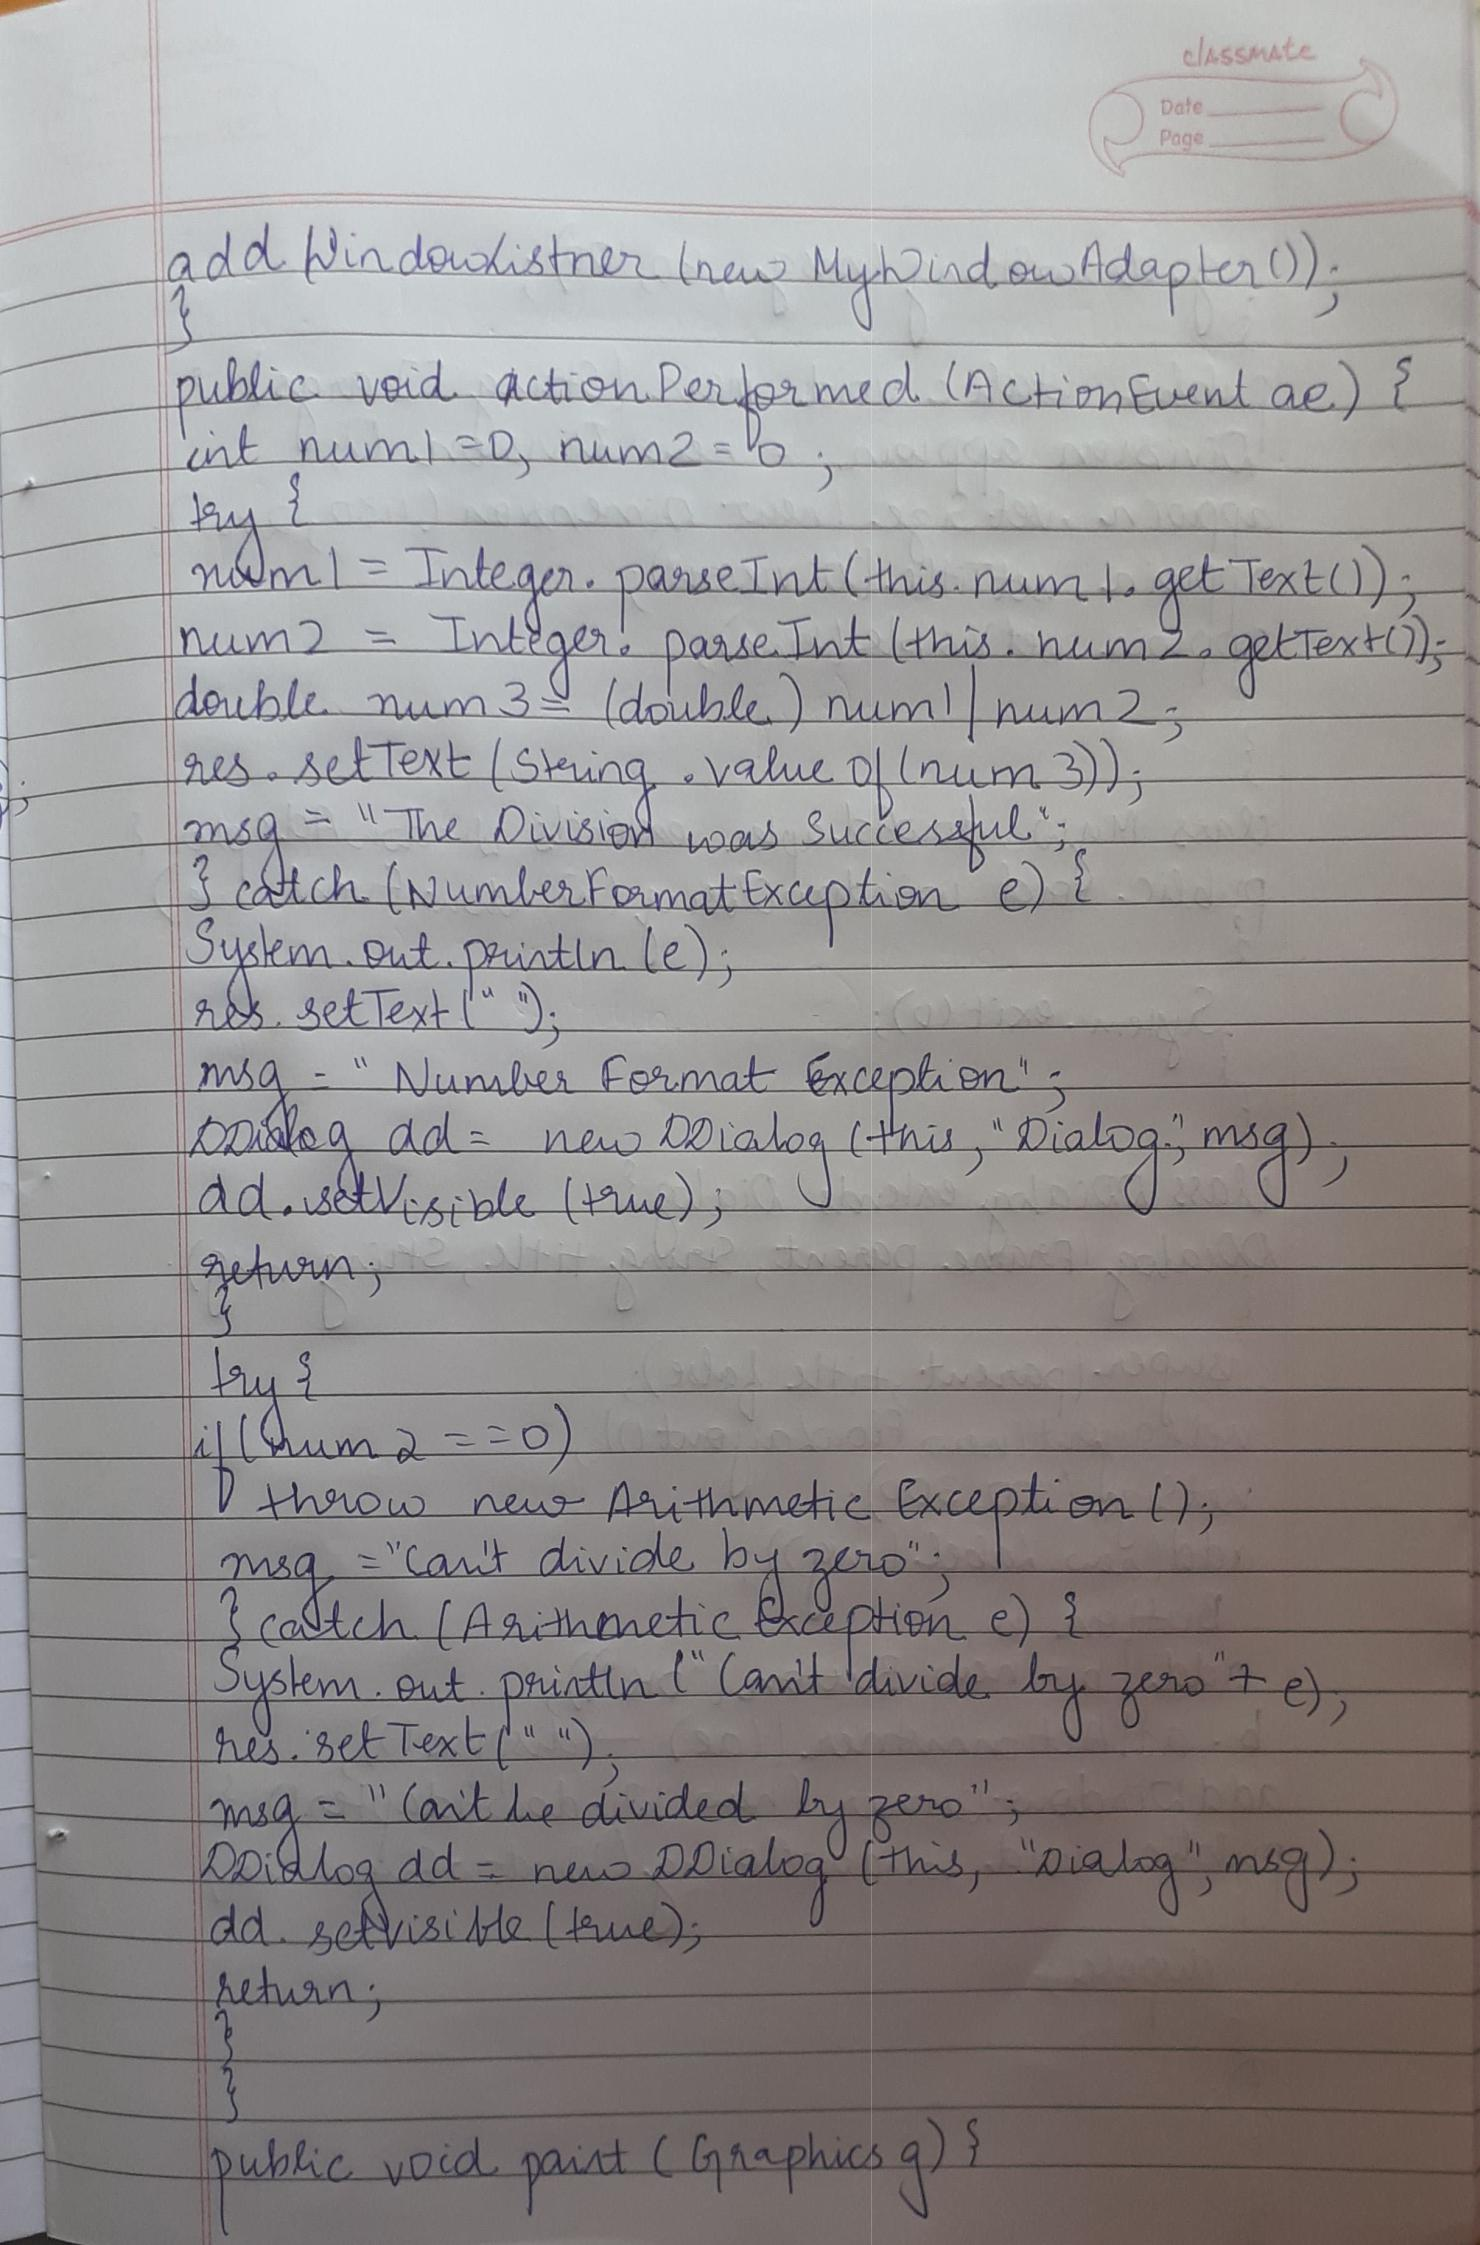 classmate
Date
Page
addWindowListner (new MyWindowAdapter());
}
public void actionPerformed (ActionEvent ae) {
int num1=0, num2=0;
try {
num1 = Integer.parseInt(this.num1.getText());
num2 = Integer.parseInt(this.num2.getText());
double num3= (double) num1/num2;
res.setText (String.valueOf(num3));
msg = "The Division was Successful";
} catch (NumberFormatException e) {
System.out.println (e);
res.setText(" ");
msg = "Number Format Exception";
DDialog dd= new DDialog (this, "Dialog", msg);
dd.setVisible (true);
return;
}
try {
if(num2 ==0)
throw new Arithmetic Exception ();
msg ="Can't divide by zero";
} catch (Arithmetic Exception e) {
System.out.println (" Can't divide by zero"+ e);
res.setText(" ");
msg = "Can't be divided by zero";
DDialog dd = new DDialog (this, "Dialog", msg);
dd.setVisible (true);
return;
}
}
public void paint (Graphics g) {